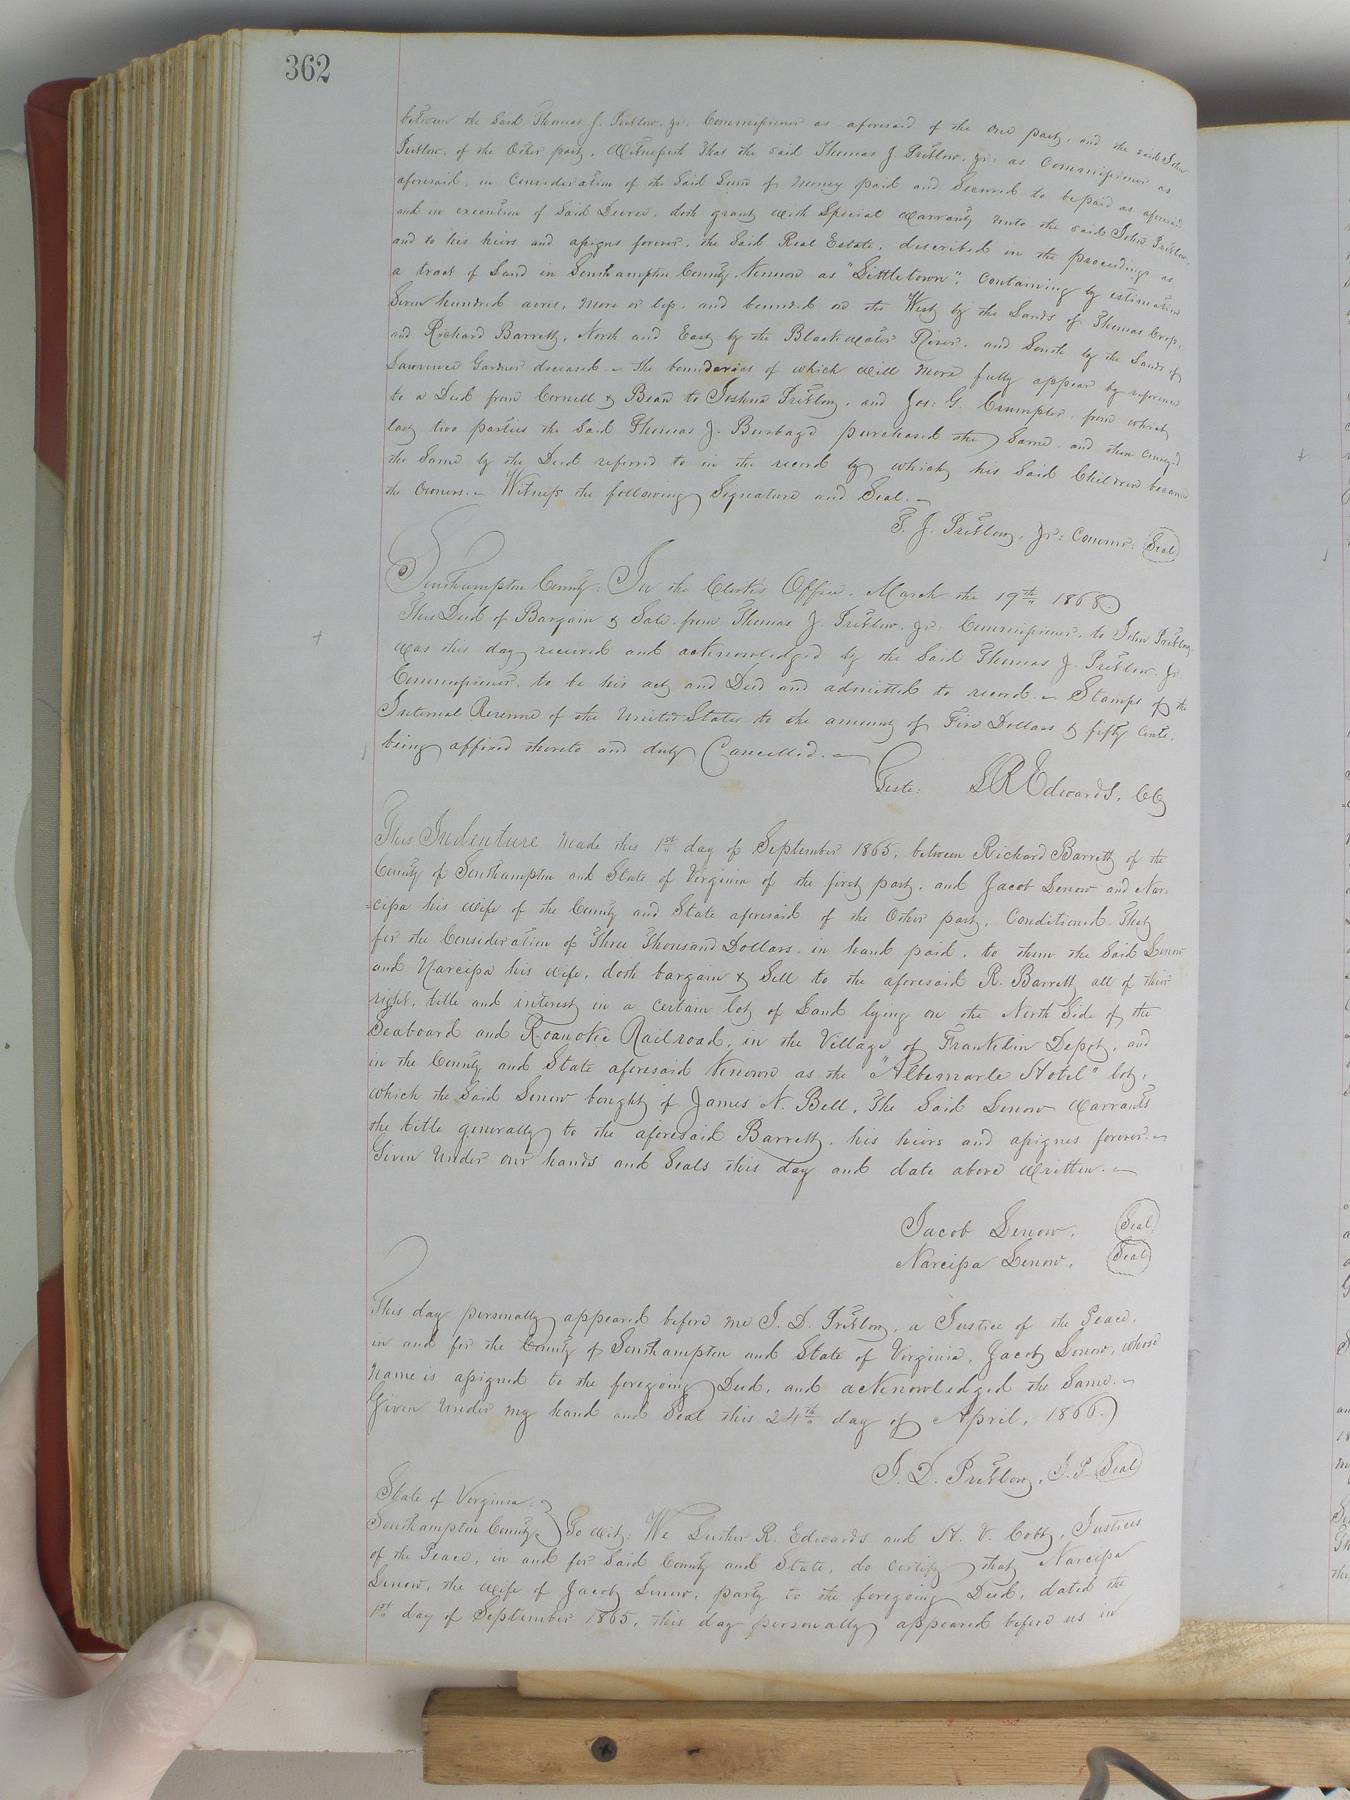 362
between the said Thomas J. Pretlow, Jr. Commissioner as aforesaid of the one part, and the said John
Pretlow, of the Other part, Witnesseth That the said Thomas J. Pretlow, Jr. as Commissioner as
aforesaid, in Consideration of the Said Sum of Money paid and Secured to be paid as aforesaid
and in execution of Said Decree, doth grant with Special Warranty unto the said John Pretlow,
and to his heirs and assigns forever, the Said Real Estate, described in the proceedings as
a tract of Land in Southampton County Known as "Littletown", Containing by estimation
Seven hundred acres, more or less, and bounded on the West by the Lands of Thomas Crop,
and Richard Barrett, North and East by the Blackwater River, and South by the Lands of
Lawrence Gardner deceased - the boundaries of which will more fully appear by reference
to a Deed from Cornell & Bean to Joshua Pretlow, and Jos: G. Crumpler, from which
last two parties the Said Thomas J. Burbage purchased the Same, and then conveyed
the Same by the Deed referred to in the record by which his Said Children became
the Owners. - Witness the following Signature and Seal. -
T. J. Pretlow, Jr: Commr. Seal
Southampton County: In the Clerk's Office, March the 19th 1868.
This Deed of Bargain & Sale, from Thomas J. Pretlow, Jr. Commissioner, to John Pretlow,
was this day received and acknowledged by the Said Thomas J. Pretlow Jr.
Commissioner, to be his act and Deed and admitted to record. - Stamps of the
Internal Revenue of the United States to the amount of Five Dollars & fifty Cents,
being affixed thereto and duly Cancelled. -
Teste: L R Edwards, CC
This Indenture made this 1st day of September 1865, between Richard Barrett of the
County of Southampton and State of Virginia of the first part, and Jacob Lenow and Nar-
=cissa his wife of the County and State aforesaid of the Other part, Conditioned That
for the Consideration of Three Thousand Dollars, in hand paid, to them the Said Lenow
and Narcissa his wife, doth bargain & Sell to the aforesaid R. Barrett, all of their
right, title and interest in a certain lot of Land lying on the North Side of the
Seaboard and Roanoke Railroad, in the Village of Franklin Depot, and
in the County and State aforesaid Known as the "Albemarle Hotel" lot,
which the Said Lenow bought of James N. Bell, The Said Lenow Warrants
the title generally to the aforesaid Barrett, his heirs and assigns forever -
Given Under our hands and Seals this day and date above Written. -
Jacob Lenow, Seal
Narcissa Lenow, Seal
This day personally appeared before me J. D. Pretlow, a Justice of the Peace,
in and for the County of Southampton and State of Virginia, Jacob Lenow, whose
name is assigned to the foregoing Deed, and acknowledged the Same. -
Given Under my hand and Seal this 24th day of April, 1866.
J. D. Pretlow, J. P. Seal
State of Virginia.
Southampton County To wit: We Luther R. Edwards and H. V. Cobb, Justices
of the Peace, in and for Said County and State, do certify that Narcissa
Lenow, the wife of Jacob Lenow, party to the foregoing Deed, dated the
1st day of September 1865, this day personally appeared before us in